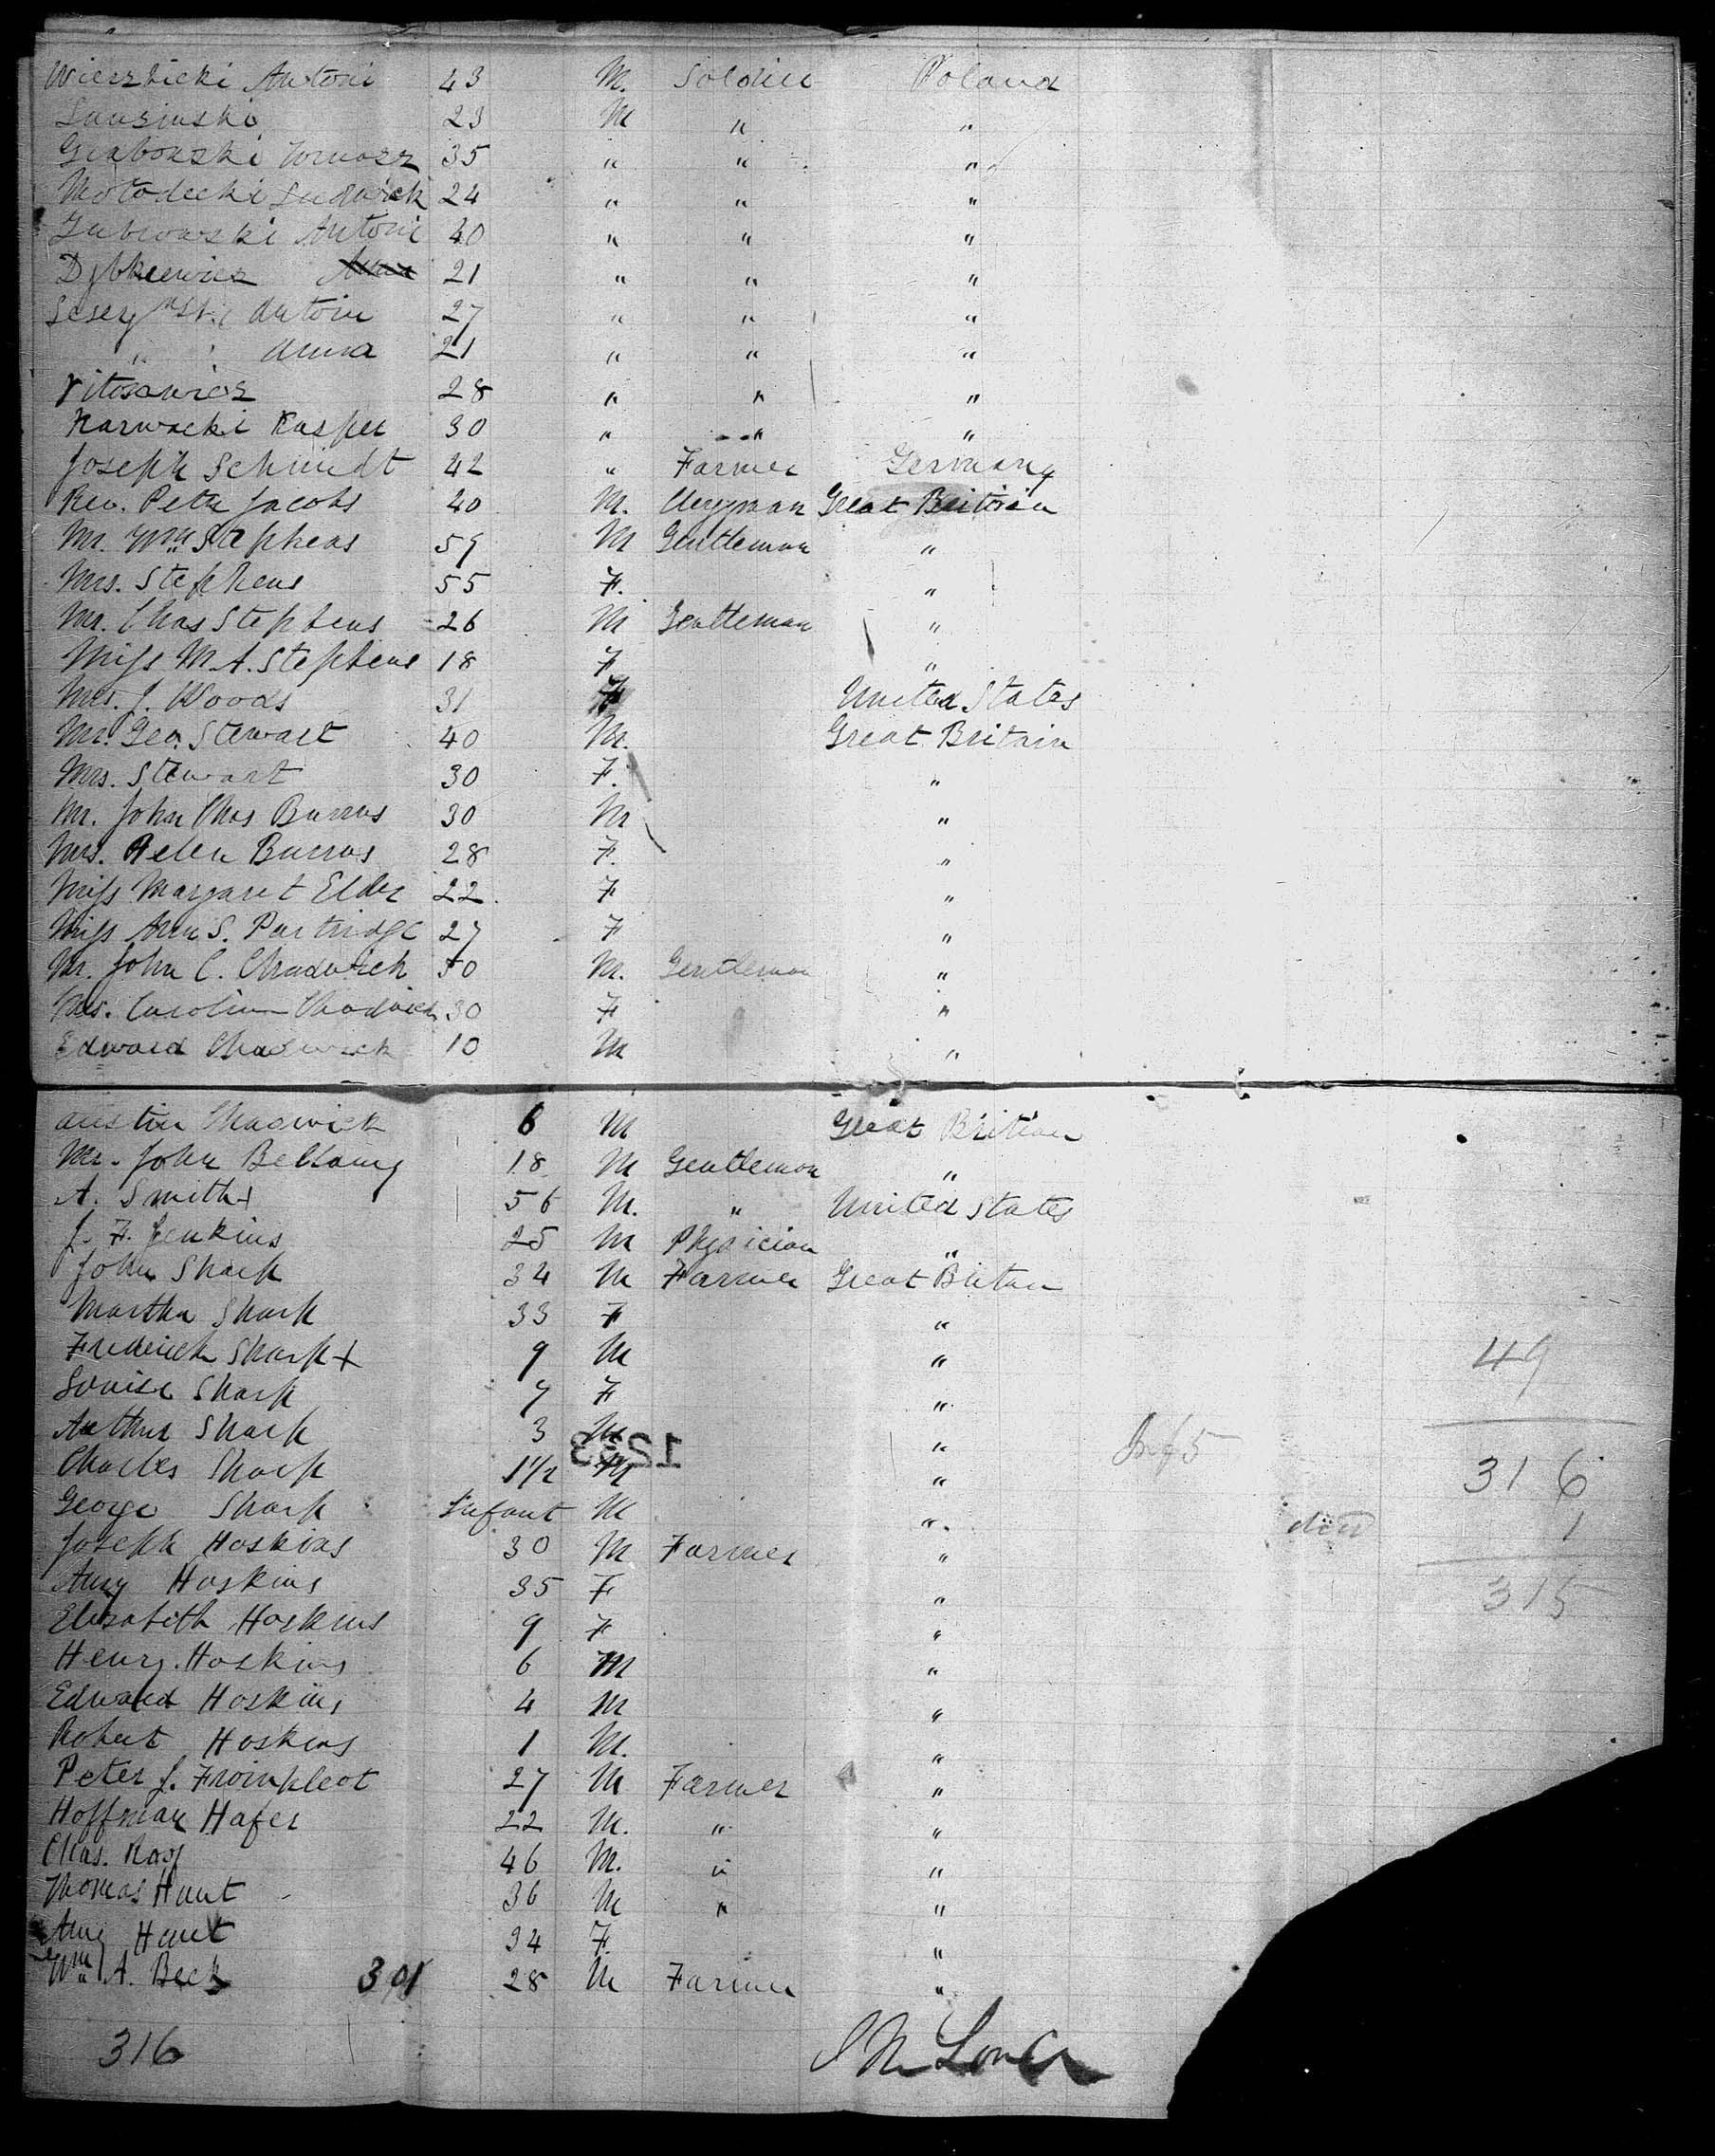 Wierzbicki Antoni 43 M. Soldier Poland
23 M " "
Grabouski Tomasz 35 " " "
Motodecki Ludwick 24 " " "
Antoni 40 " " "
21 " " "
Antoni 27 " " "
" " Anna 21 " " "
Vitosawicz 28 " " "
Karwacki Kasper 30 " " "
Joseph Schmidt 42 " Farmer Germany
Rev. Peter Jacobs 40 M. Clergyman Great Britain
Mr. Wm. Stephens 59 M Gentleman "
Mrs. Stephens 55 F. "
Mr. Chas Stephens 26 M Gentleman "
Miss M. A. Stephens 18 F "
Mrs. J. Woods 31 F United States
Mr. Geo. Stewart 40 M. Great Britain
Mrs. Stewart 30 F. "
Mr. John Chas Burrows 30 M "
Mrs. Helen Burrows 28 F. "
Miss Margaret Elder 22 F "
Miss Ann S. Partridge 27 F "
Mr. John C. Chadwick 50 M. Gentleman "
Mrs. Caroline Chadwick 30 F "
Edward Chadwick 10 M "
Austin Chadwick 6 M Great Britian
Mr. John Bellamy 18 M Gentleman "
A. Smith + 56 M. " United States
J. F. Jenkins 25 M Physician "
John Sharp 34 M Farmer Great Britan
Martha Sharp 33 F "
Frederick Sharp + 9 M " 49
Louise Sharp 7 F "
Arthur Sharp 3 M " Inf 5
Charles Sharp 1 1/2 M 1233 " 316
George Sharp Infant M " died 1
Joseph Hoskins 30 M Farmer "
Amy Hoskins 35 F " 315
Elizabeth Hoskins 9 F "
Henry Hoskins 6 M "
Edward Hoskins 4 M "
Robert Hoskins 1 M. "
Peter J. Froinpleot 27 M Farmer "
Hoffman Hafer 22 M. " "
Chas. Ray 46 M. " "
Thomas Hunt 36 M " "
Amy Hunt 34 F. "
Wm. A. Beck 301 28 M Farmer "
316